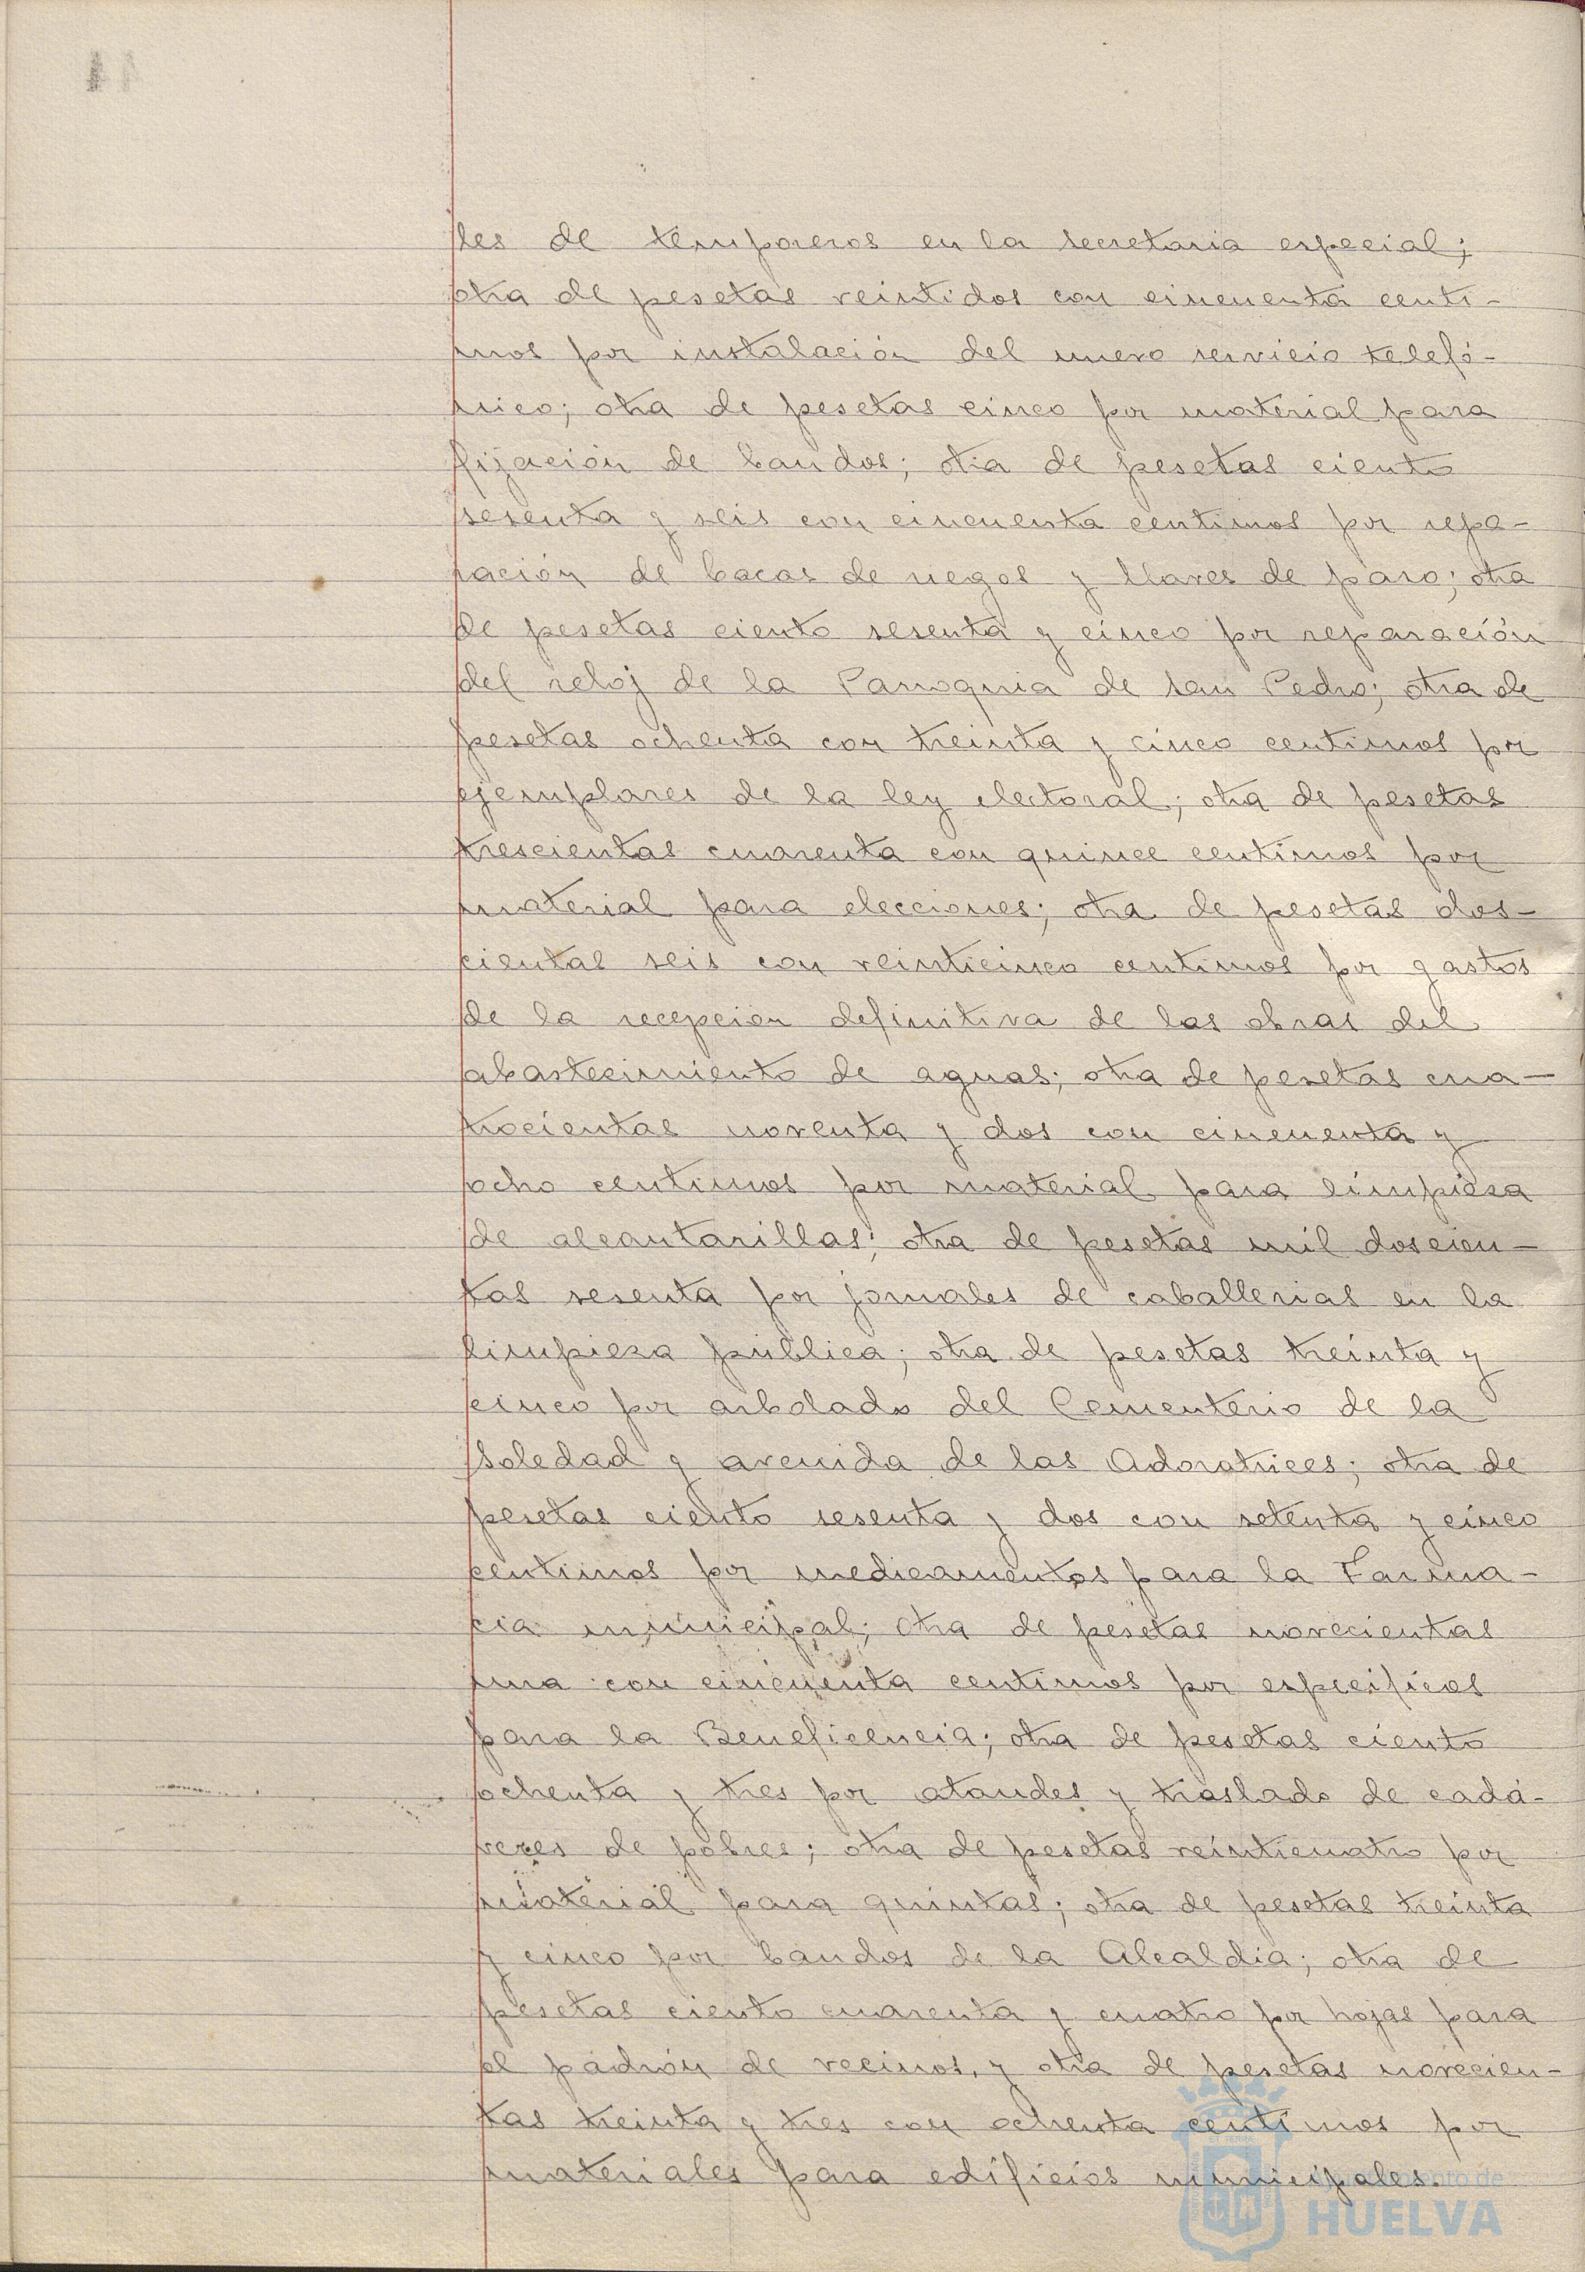 les de temporeros en la secretaria especial;
otra de pesetas veintidos con cincuenta centi-
mos por instalación del nuevo servicio telefó-
nico; otra de pesetas cinco por material para
fijación de bandos; otra de pesetas ciento
sesenta y seis con cincuenta centimos por repa-
ración de bocas de riegos y llaves de paso; otra
de pesetas ciento sesenta y cinco por reparación
del reloj de la Parroquia de San Pedro; otra de
pesetas ochenta con treinta y cinco centimos por
ejemplares de la ley electoral; otra de pesetas
trescientas cuarenta con quince centimos por
material para elecciones; otra de pesetas dos-
cientas seis con veinticinco centimos por gastos
de la recepción definitiva de las obras del
abastecimiento de aguas; otra de pesetas cua-
trocientas noventa y dos con cincuenta y
ocho centimos por material para limpieza
de alcantarillas; otra de pesetas mil doscien-
tas sesenta por jornales de caballerias en la
limpieza pública; otra de pesetas treinta y
cinco por arbolado del Cementerio de la
Soledad y avenida de las Adoratrices; otra de
pesetas ciento sesenta y dos con setenta y cinco
centimos por medicamentos para la Farma-
cia municipal; otra de pesetas novecientas
una con cincuenta centimos por especificos
para la Beneficencia; otra de pesetas ciento
ochenta y tres por ataudes y traslado de cadá-
veres de pobres; otra de pesetas veinticuatro por
material para quintas; otra de pesetas treinta
y cinco por bandos de la Alcaldia; otra de
pesetas ciento cuarenta y cuatro por hojas para
el padrón de vecinos, y otra de pesetas novecien-
tas treinta y tres con ochenta centimos por
materiales para edificios municipales.
Ayuntamiento de
HUELVA